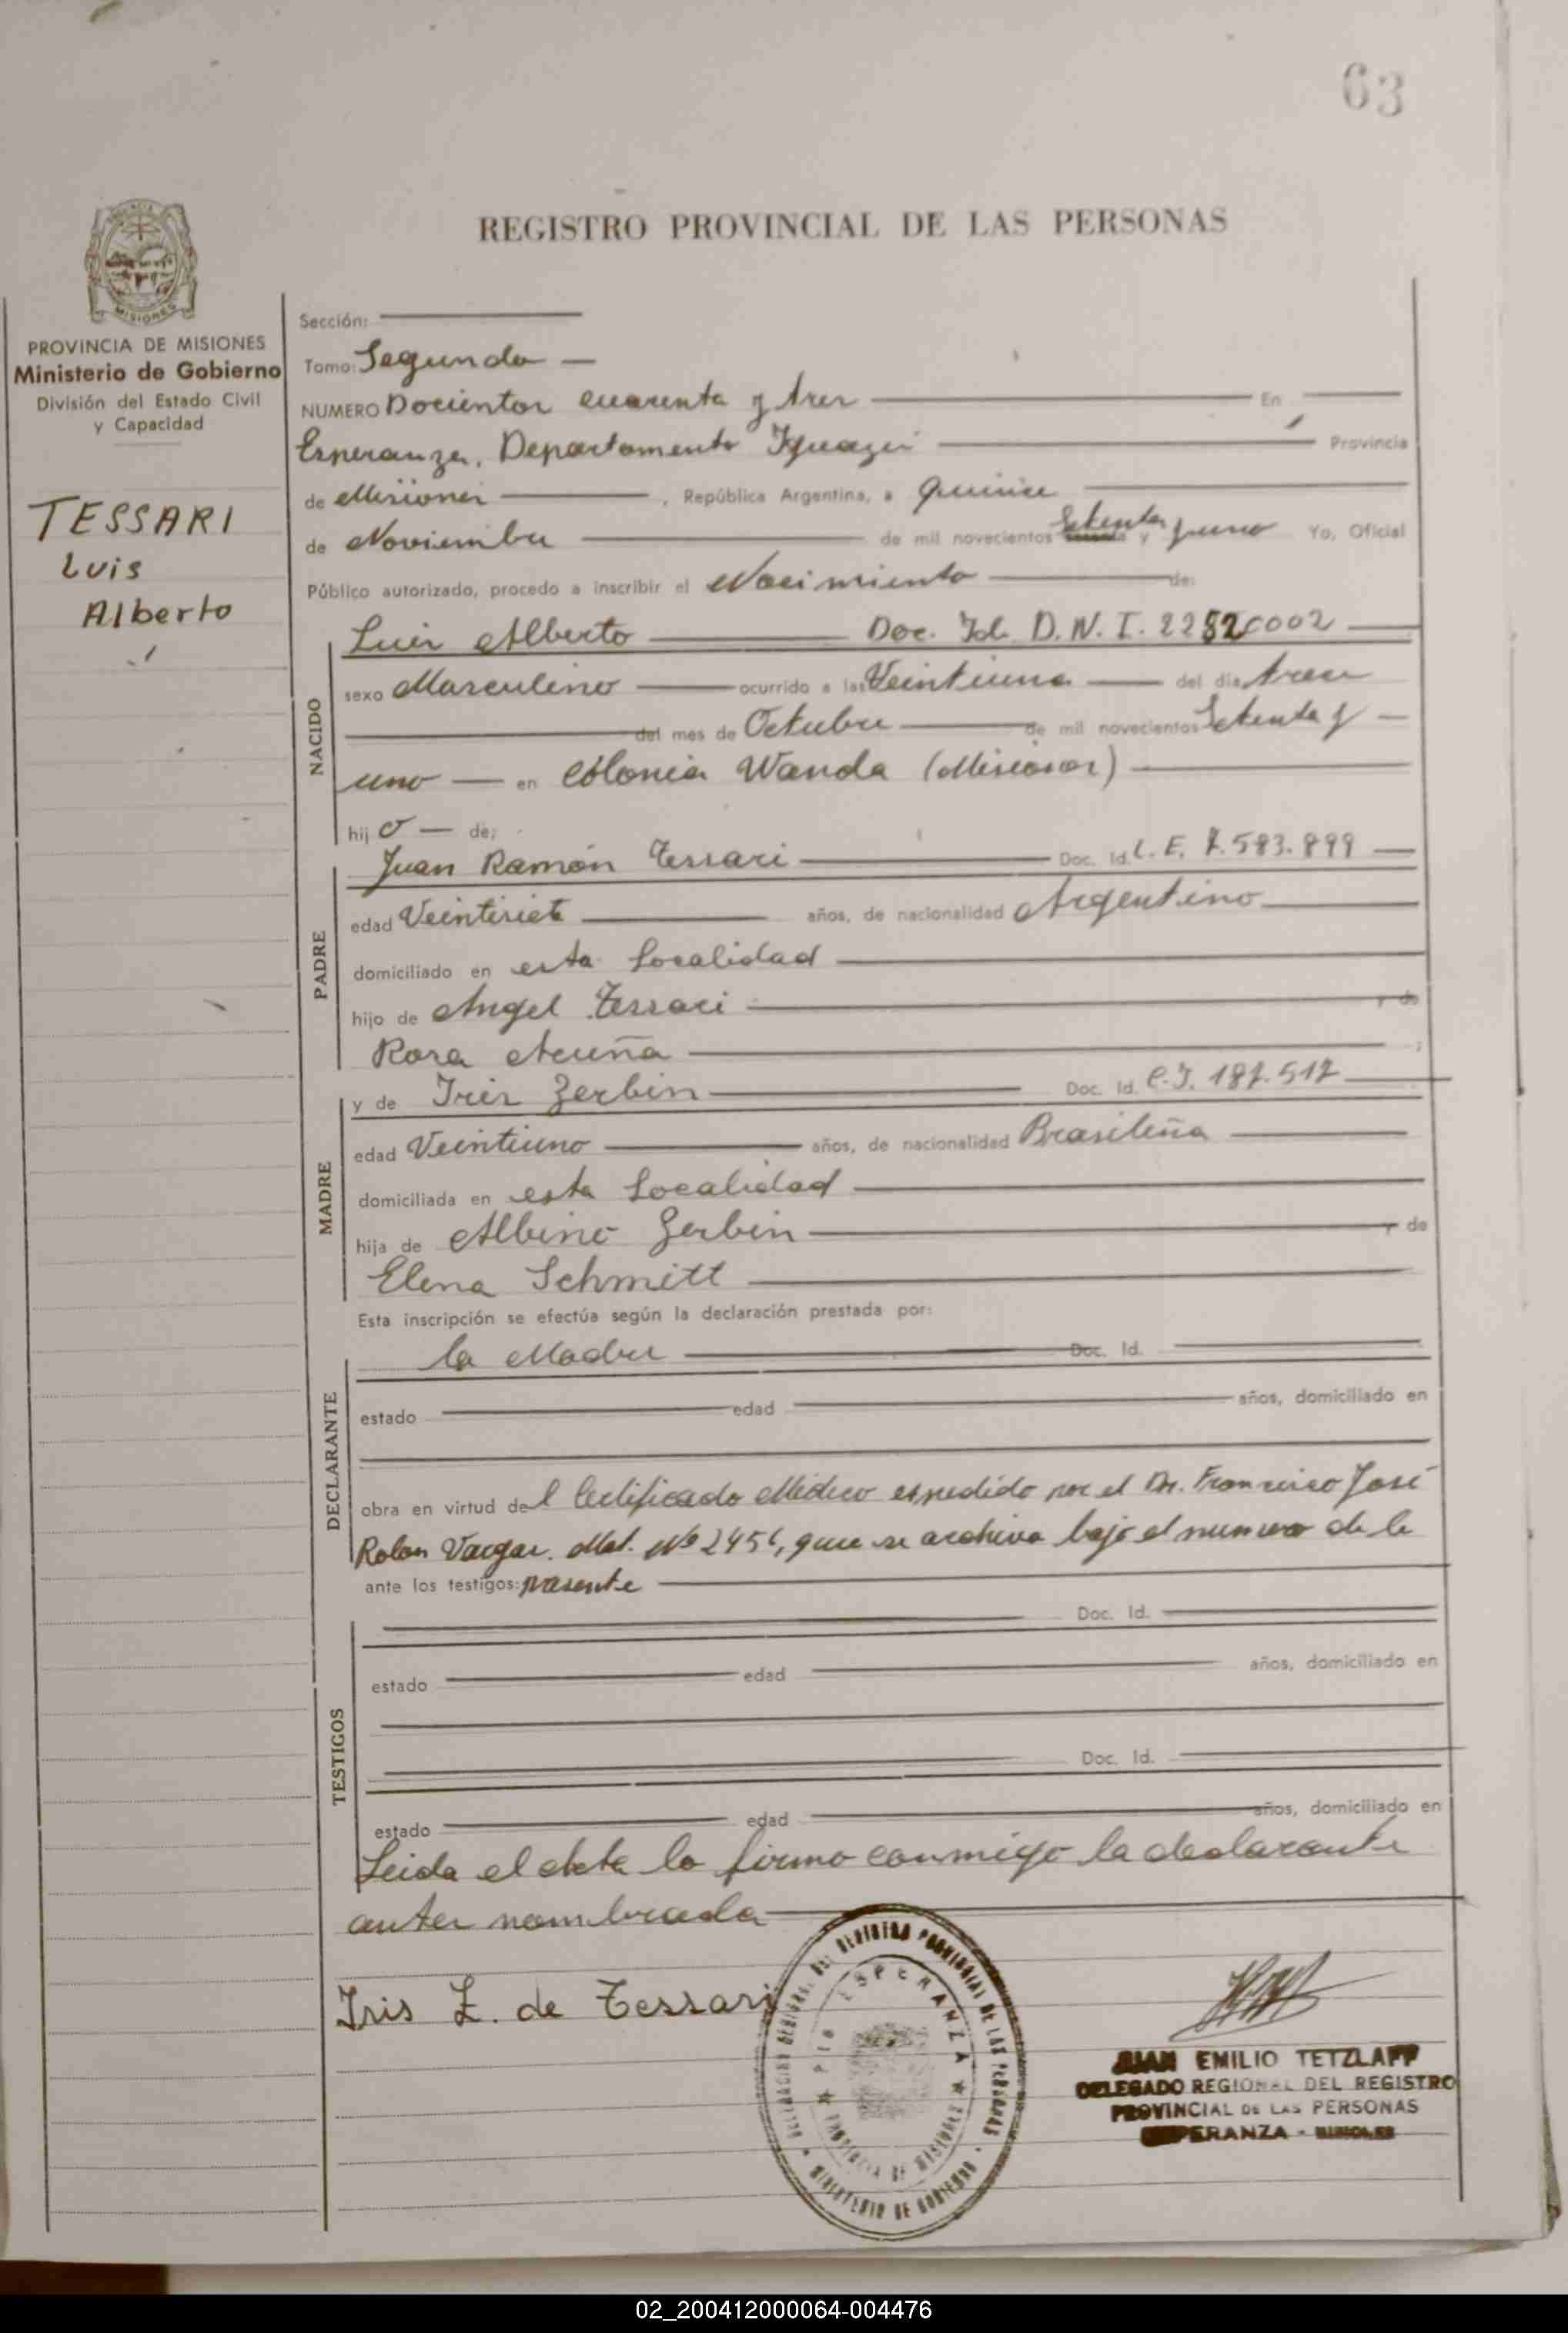 63
REGISTRO PROVINCIAL DE LAS PERSONAS
PROVINCIA DE MISIONES
Ministerio de Gobierno
División del Estado Civil
y Capacidad
TESSARI
Luis
Alberto
Sección:
Tomo: Segundo
NUMERO Docientos cuarenta y tres En
Esperanza, Departamento Iguazú Provincia
de Misiones, República Argentina, a quince
de Noviembre de mil novecientos Setenta y uno Yo, Oficial
Público autorizado, procedo a inscribir el Nacimiento de:
NACIDO
Luis Alberto Doc. Id. D.N.I.
sexo Masculino ocurrido a las Veintiuna del día trece
del mes de Octubre de mil novecientos Setenta y
uno en Colonia Wanda (Misiones)
hijo de:
PADRE
Juan Ramón Tessari Doc. Id. L.E.
edad Veintisiete años, de nacionalidad Argentino
domiciliado en esta Localidad
hijo de Angel Tessari y de
Rosa Acuña ;
MADRE
y de Iris Zerbin Doc. Id. C.I.
edad Veintiuno años, de nacionalidad Brasileña
domiciliada en esta Localidad
hija de Albino Zerbin y de
Elena Schmitt
Esta inscripción se efectúa según la declaración prestada por:
DECLARANTE
la Madre Doc. Id.
estado edad años, domiciliado en
obra en virtud del Certificado Médico espedido por el Dr. Francisco José
Rolon Vargas. Mat. Nº, que se archiva bajo el numero de la
ante los testigos: presente
TESTIGOS
Doc. Id.
estado edad años, domiciliado en
Doc. Id.
estado edad años, domiciliado en
Leida el Acta la firma conmigo la declarante
antes nombrada
Iris Z. de Tessari
DELEGACION REGIONAL DEL REGISTRO PROVINCIAL DE LAS PERSONAS
MINISTERIO DE GOBIERNO
ESPERANZA
PROVINCIA DE MISIONES
JUAN EMILIO TETZLAFF
DELEGADO REGIONAL DEL REGISTRO
PROVINCIAL DE LAS PERSONAS
ESPERANZA - MISIONES
02_200412000064-004476